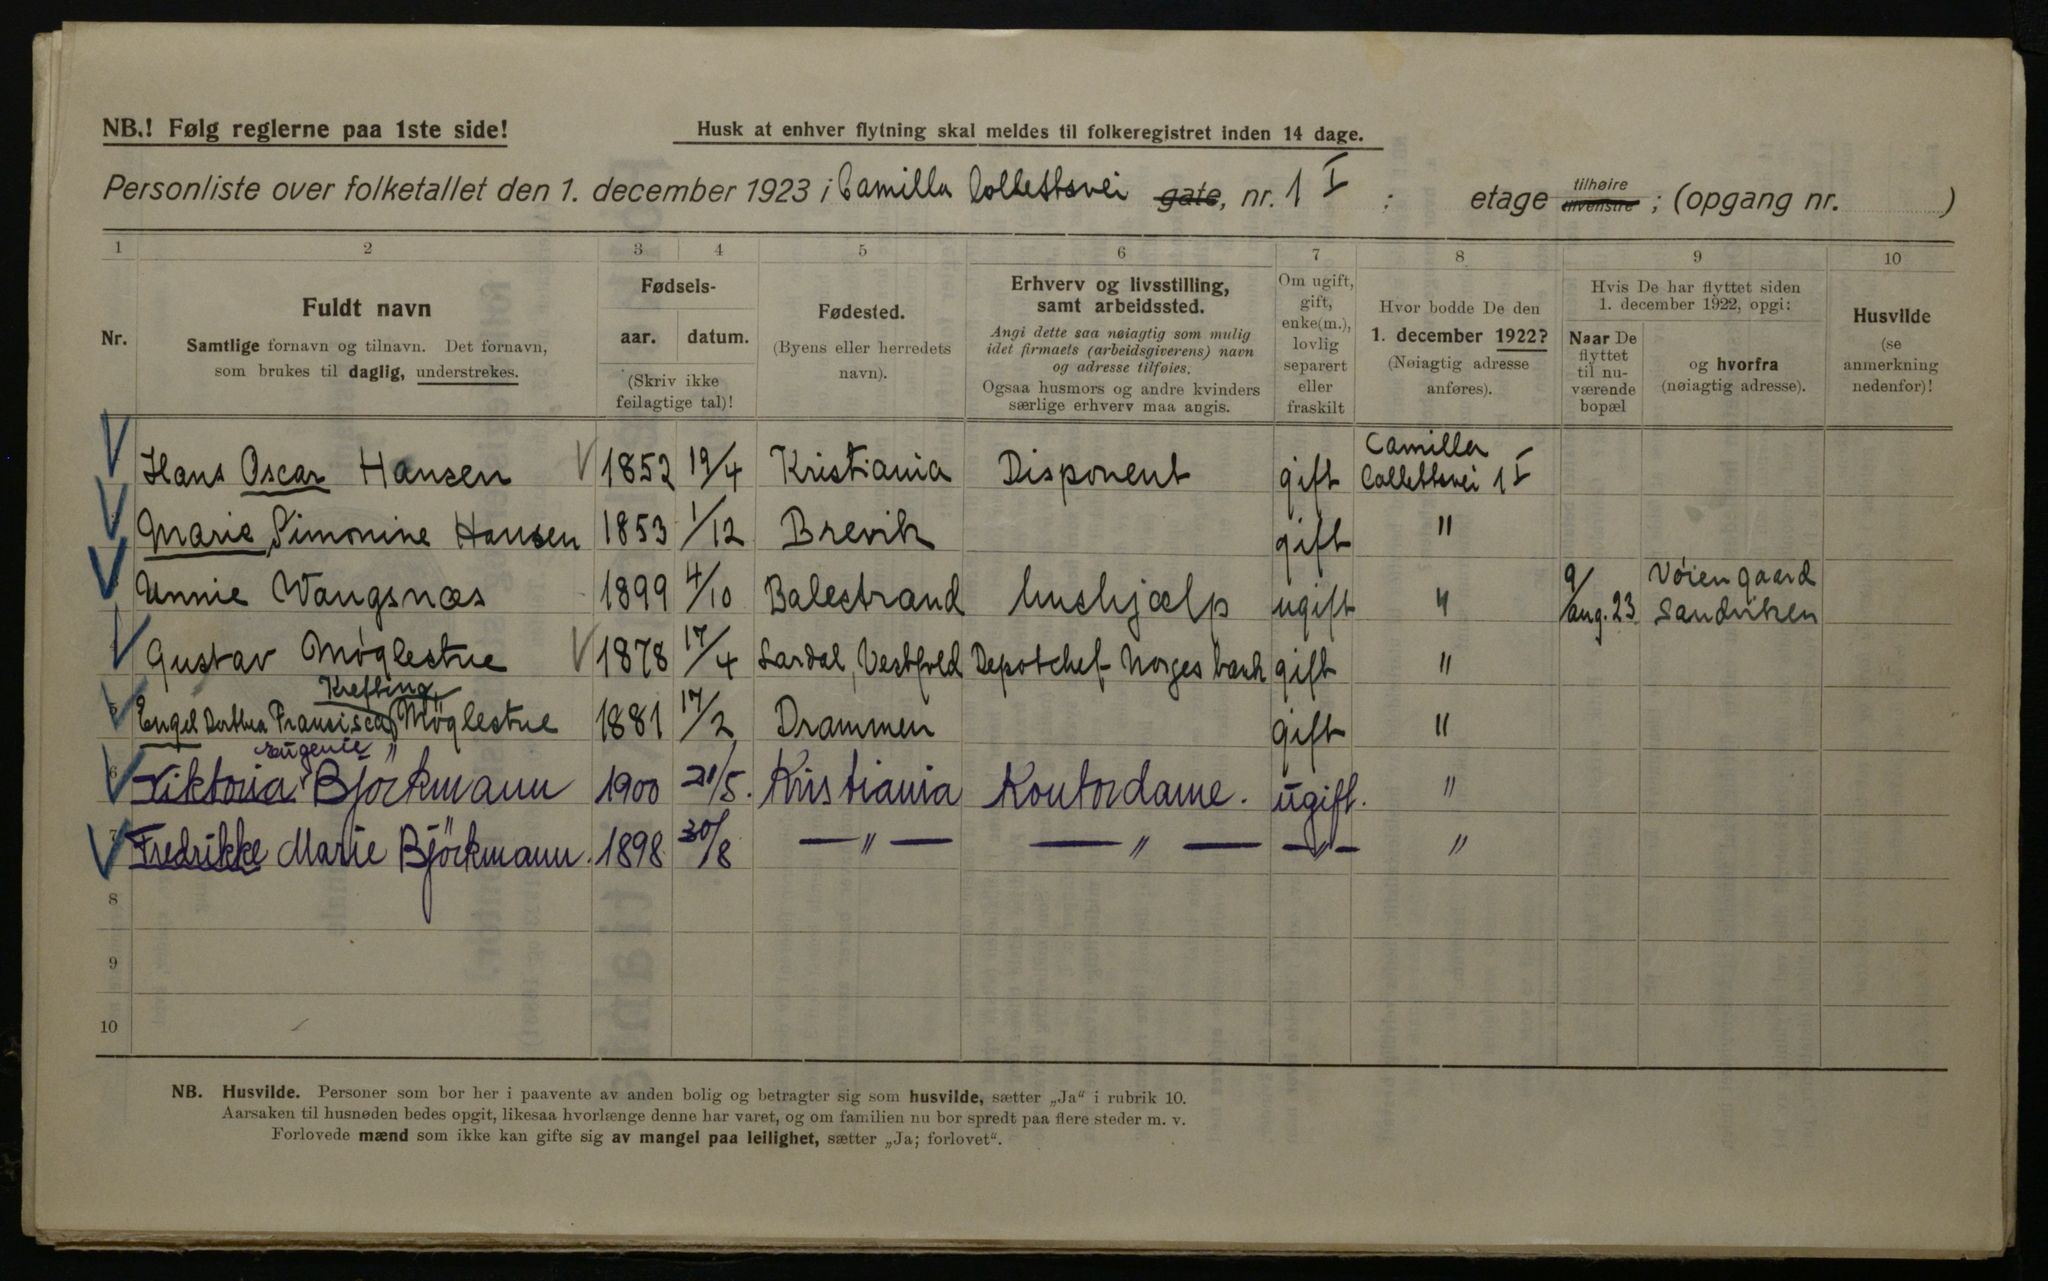 NB.! Følg reglerne paa 1ste side!
Husk at enhver flytning skal meldes til folkeregistret inden 14 dage.
Personliste over folketallet den 1. december 1923 i Camilla Collettsvei gate, nr. 1 I ; etage tilhøire tilvenstre ; (opgang nr. )
1 2 3 4 5 6 7 8 9 10
Nr.
Fuldt navn
Samtlige fornavn og tilnavn. Det fornavn,
som brukes til daglig, understrekes.
Fødsels-
aar. datum.
(Skriv ikke
feilagtige tal)!
Fødested.
(Byens eller herredets
navn).
Erhverv og livsstilling,
samt arbeidssted.
Angi dette saa nøiagtig som mulig
idet firmaets (arbeidsgiverens) navn
og adresse tilføies.
Ogsaa husmors og andre kvinders
særlige erhverv maa angis.
Om ugift,
gift,
enke(m.),
lovlig
separert
eller
fraskilt
Hvor bodde De den
1. december 1922?
(Nøiagtig adresse
anføres).
Hvis De har flyttet siden
1. december 1922, opgi:
Naar De
flyttet
til nu-
værende
bopæl
og hvorfra
(nøiagtig adresse).
Husvilde
(se
anmerkning
nedenfor)!
Hans Oscar Hansen 1852 19/4 Kristiania Disponent gift Camilla Collettsvei 1 I
Marie Simonine Hansen 1853 1/12 Brevik gift "
Annie Wangsnæs 1899 4/10 Balestrand hushjælp ugift " 9/aug. 23 Vøiengaard Sandviken
Gustav Møglestue 1878 17/4 Lardal, Vestfold Depotchef Norges bank gift "
Krefting
5 Engel Dorthea Francisca Møglestue 1881 17/2 Drammen gift "
Eugenie "
6 Viktoria Björkmann 1900 21/5. Kristiania Kontordame. ugift. "
7 Fredrikke Marie Björkmann. 1898 30/8 — " — — " — — " — "
8
9
10
NB. Husvilde. Personer som bor her i paavente av anden bolig og betragter sig som husvilde, sætter „Ja“ i rubrik 10.
Aarsaken til husnøden bedes opgit, likesaa hvorlænge denne har varet, og om familien nu bor spredt paa flere steder m. v.
Forlovede mænd som ikke kan gifte sig av mangel paa leilighet, sætter „Ja; forlovet“.